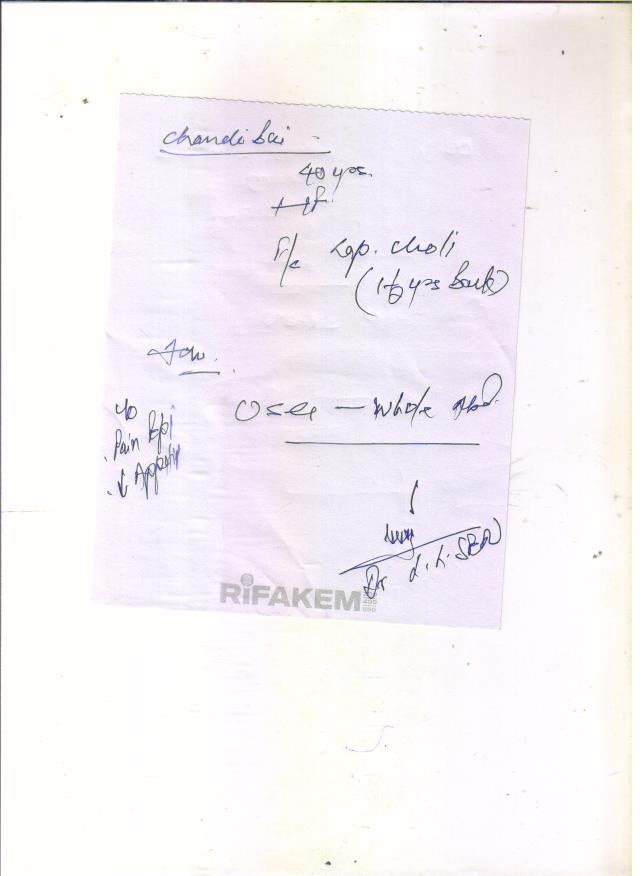 Chandi bai
40 yrs.
F/c Lap. choli
(1½ yrs back)
Adv.
USG — Whole Abd.
c/o
Pain Epi
↓ Appetite
Dr
RiFAKEM